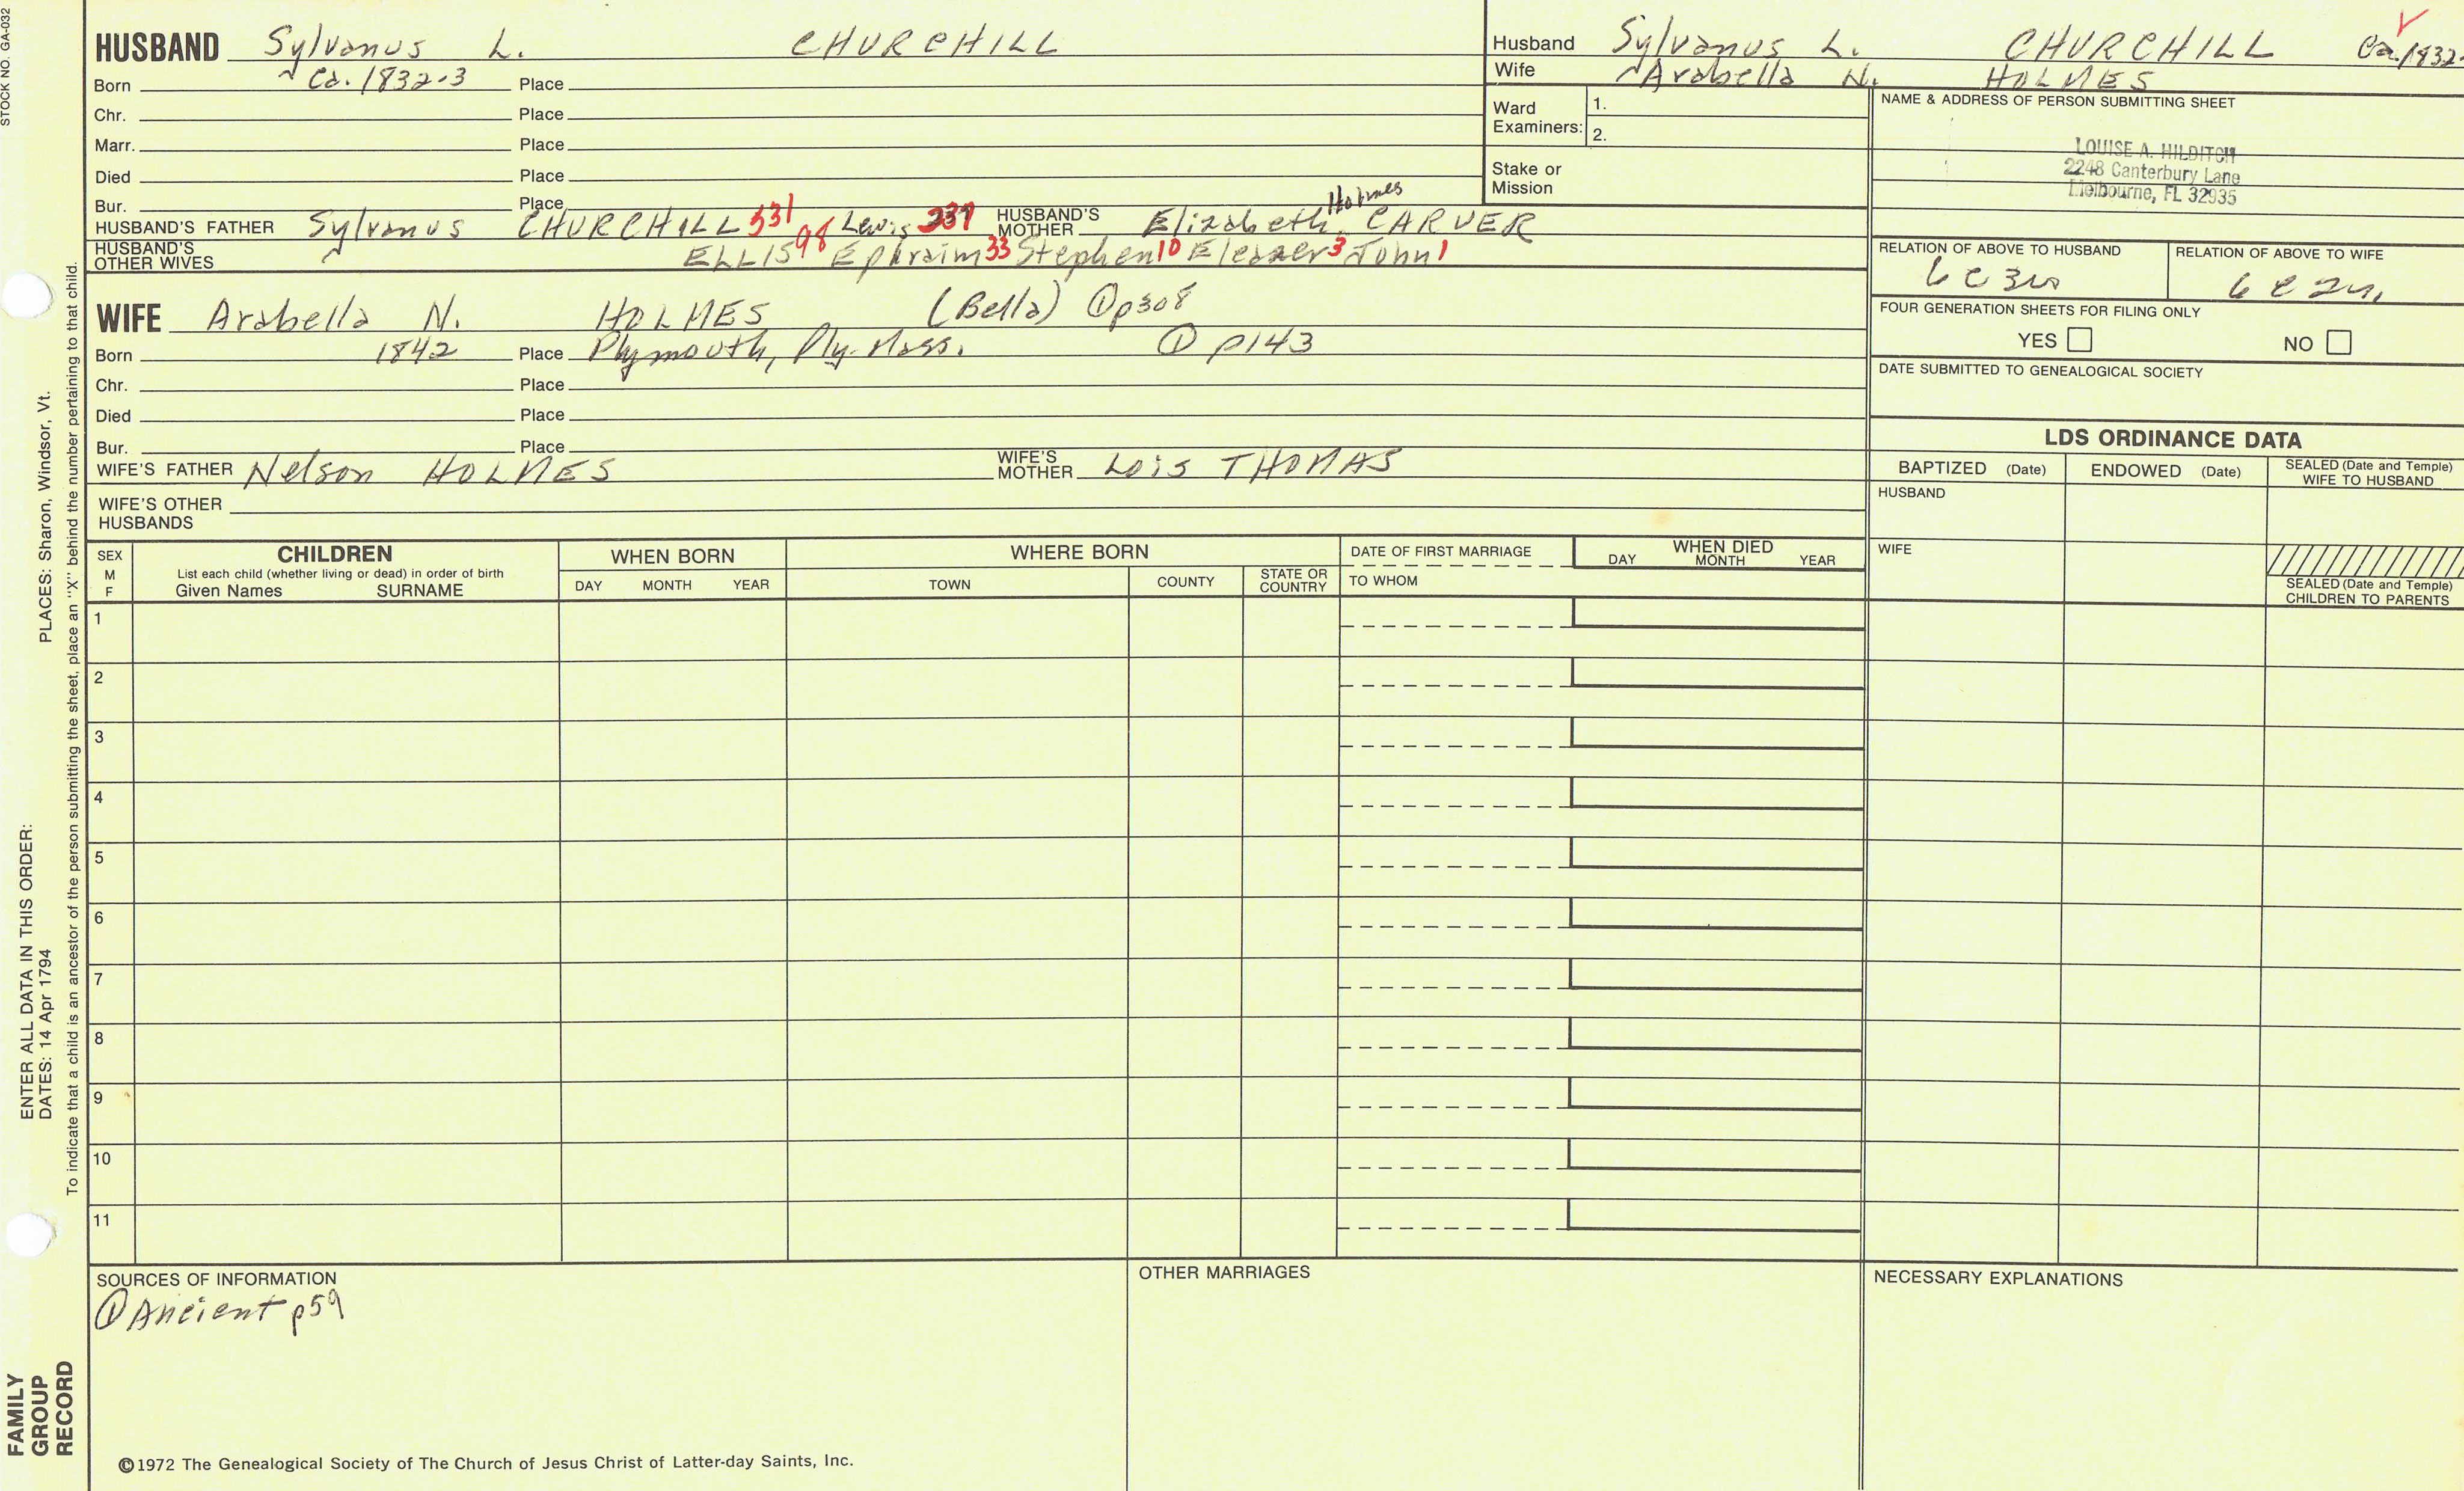 STOCK NO. GA-032
HUSBAND Sylvanus L. CHURCHILL
Born Ca. 1832-3 Place
Chr. Place
Marr. Place
Died Place
Bur. Place
HUSBAND'S FATHER Sylvanus CHURCHILL 531 Lewis 237 HUSBAND'S MOTHER Elizabeth Holmes CARVER
HUSBAND'S OTHER WIVES ELLIS 98 Ephraim 33 Stephen 10 Eleazer 3 John 1
WIFE Arabella N. HOLMES (Bella) ① p308
Born 1842 Place Plymouth, Ply. Mass. ① p143
Chr. Place
Died Place
Bur. Place
WIFE'S FATHER Nelson HOLMES WIFE'S MOTHER Lois THOMAS
WIFE'S OTHER HUSBANDS
Husband Sylvanus L. CHURCHILL Ca. 1832-
Wife Arabella N. HOLMES
Ward Examiners: 1.
2.
Stake or Mission
NAME & ADDRESS OF PERSON SUBMITTING SHEET
LOUISE A. HILDITCH
2248 Canterbury Lane
Melbourne, FL 32935
RELATION OF ABOVE TO HUSBAND RELATION OF ABOVE TO WIFE
6c3r 6c2r
FOUR GENERATION SHEETS FOR FILING ONLY
YES NO
DATE SUBMITTED TO GENEALOGICAL SOCIETY
LDS ORDINANCE DATA
BAPTIZED (Date) ENDOWED (Date) SEALED (Date and Temple) WIFE TO HUSBAND
HUSBAND
WIFE
SEALED (Date and Temple) CHILDREN TO PARENTS
SEX M F
CHILDREN
List each child (whether living or dead) in order of birth
Given Names SURNAME
WHEN BORN
DAY MONTH YEAR
WHERE BORN
TOWN COUNTY STATE OR COUNTRY
DATE OF FIRST MARRIAGE
TO WHOM
WHEN DIED
DAY MONTH YEAR
1
2
3
4
5
6
7
8
9
10
11
SOURCES OF INFORMATION
① Ancient p59
OTHER MARRIAGES
NECESSARY EXPLANATIONS
©1972 The Genealogical Society of The Church of Jesus Christ of Latter-day Saints, Inc.
ENTER ALL DATA IN THIS ORDER:
DATES: 14 Apr 1794 PLACES: Sharon, Windsor, Vt.
To indicate that a child is an ancestor of the person submitting the sheet, place an "X" behind the number pertaining to that child.
FAMILY
GROUP
RECORD